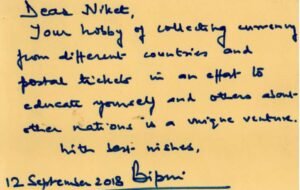 Dear Niket,
Your hobby of collecting currency
from different countries and
postal tickets in an effort to
educate yourself and others about
other nations is a unique venture.
With best wishes,
12 September 2018 Bipin